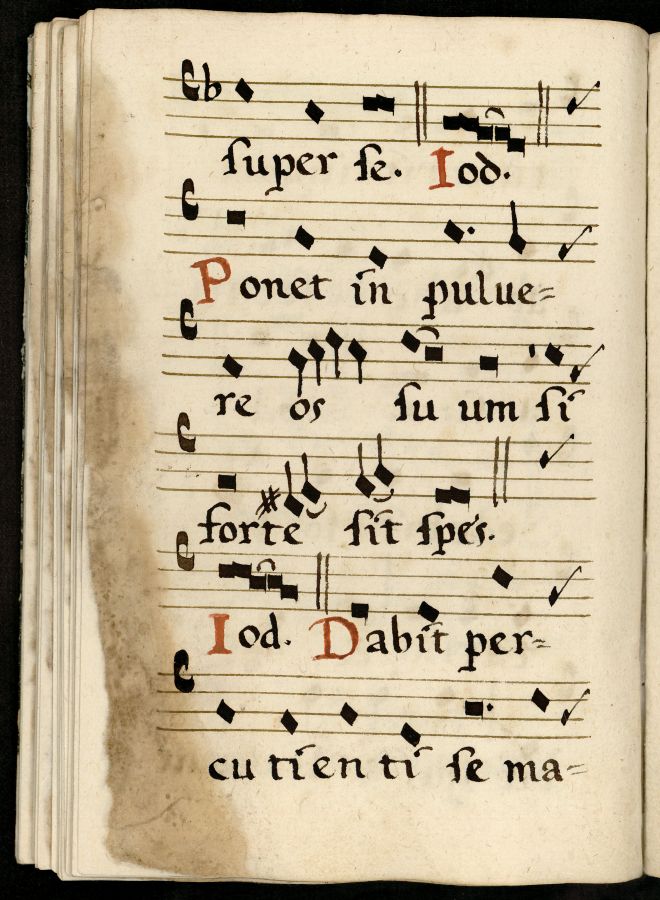 super se. Iod.
Ponet in pulue=
re os suum si
forte sit spes.
Iod. Dabit per=
cutienti se ma=